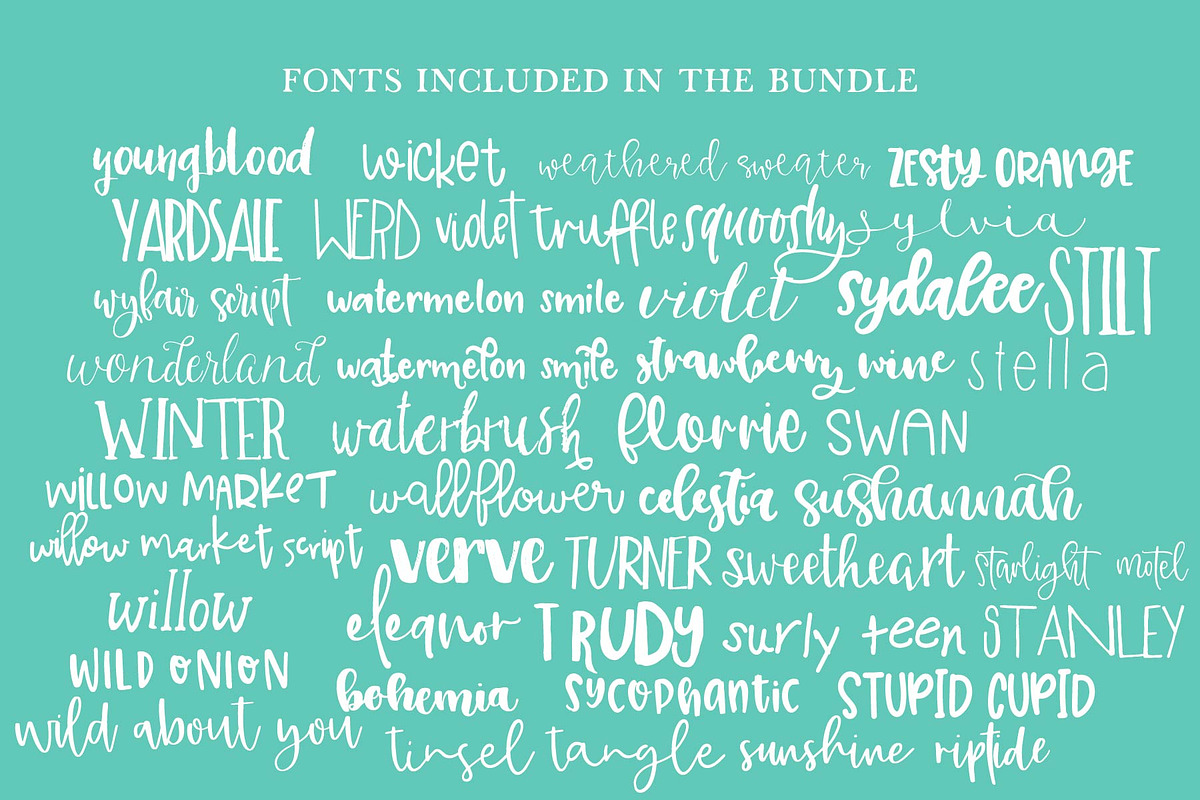 FONTS INCLUDED IN THE BUNDLE
youngblood wicket weathered sweater ZESTY ORANGE
YARDSALE WERD violet truffle squooshy sylvia
wyfair script watermelon smile violet sydalee STILT
wonderland watermelon smile strawberry wine stella
WINTER waterbrush florrie SWAN
WILLOW MARKET wallflower celestia sushannah
willow market script verve TURNER sweetheart starlight motel
willow eleanor TRUDY surly teen STANLEY
WILD ONION bohemia sycophantic STUPID CUPID
wild about you tinsel tangle sunshine riptide